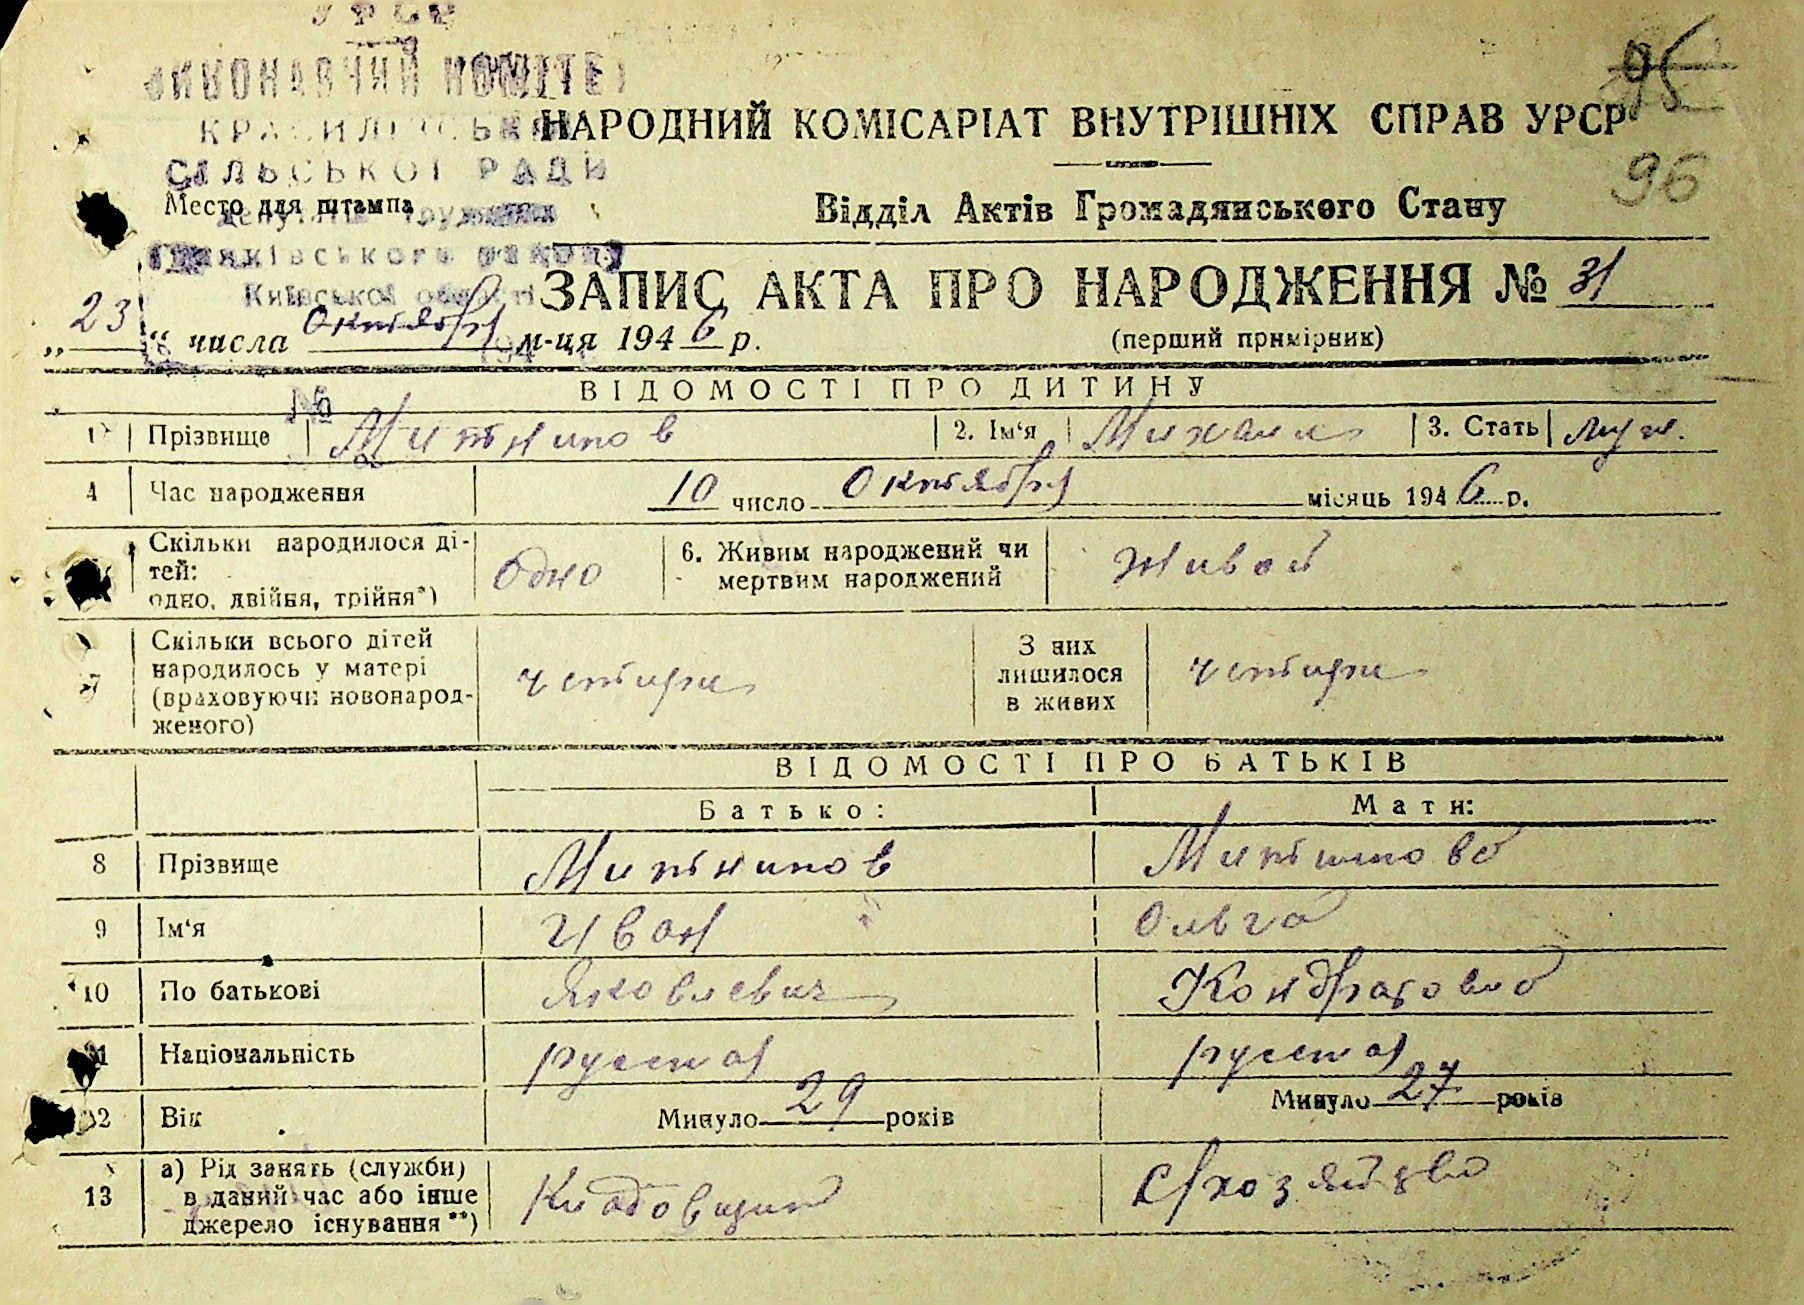 УРСР
ВИКОНАВЧИЙ КОМІТЕТ
КРАСИЛІВСЬКОЇ
СІЛЬСЬКОЇ РАДИ
депутатів трудящих
Київської області
95
96
НАРОДНИЙ КОМІСАРІАТ ВНУТРІШНІХ СПРАВ УРСР
Место для штампа
Відділ Актів Громадянського Стану
ЗАПИС АКТА ПРО НАРОДЖЕННЯ № 31
„23“ числа Октября м-ця 1946 р.
(перший примірник)
№
ВІДОМОСТІ ПРО ДИТИНУ
1 Прізвище Митников 2. Ім‘я Михаил 3. Стать муж.
4 Час народження 10 число Октября місяць 1946 р.
Скільки народилося ді-
тей:
одно, двійня, трійня*)
Одно
6. Живим народжений чи
мертвим народжений
Живой
7 Скільки всього дітей
народилось у матері
(враховуючи новонарод-
женого)
четири
З них
лишилося
в живих
четири
ВІДОМОСТІ ПРО БАТЬКІВ
Батько: Мати:
8 Прізвище Митников Митникова
9 Ім‘я Иван Ольга
10 По батькові Яковлевич Кондратовна
11 Національність русская русская
12 Вік Минуло 29 років Минуло 27 років
13 а) Рід занять (служби)
в даний час або інше
джерело існування**)
Кладовщик
с/хозяйство